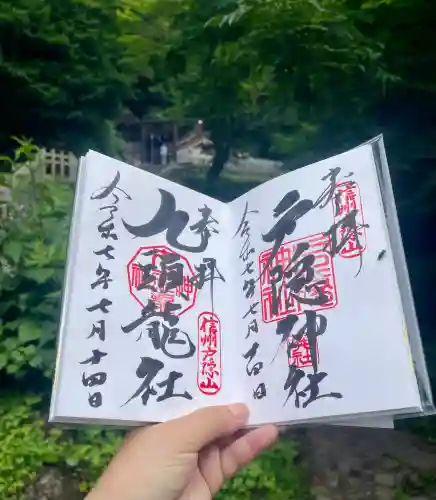 奉拝
信州戸隠山
戸隠神社
令和七年七月十四日
奉拝
九頭龍社
信州戸隠山
令和七年七月十四日